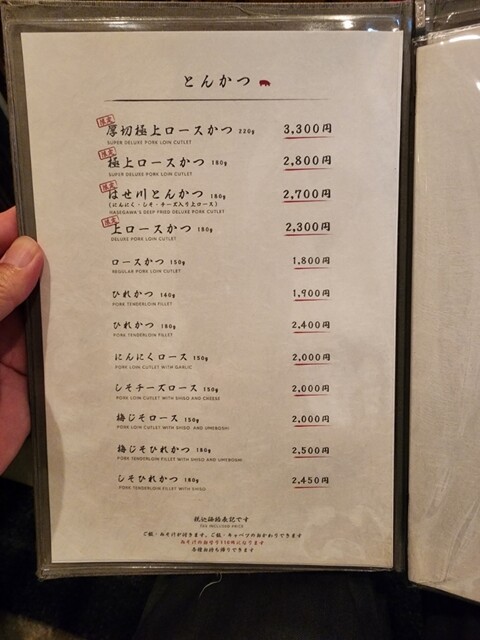 とんかつ
限定
厚切極上ロースかつ 220g 3,300円
SUPER DELUXE PORK LOIN CUTLET
限定
極上ロースかつ 180g 2,800円
SUPER DELUXE PORK LOIN CUTLET
限定
はせ川とんかつ 180g 2,700円
(にんにく・しそ・チーズ入り上ロース)
HASEGAWA'S DEEP FRIED DELUXE PORK CUTLET
限定
上ロースかつ 180g 2,300円
DELUXE PORK LOIN CUTLET
ロースかつ 150g 1,800円
REGULAR PORK LOIN CUTLET
ひれかつ 140g 1,900円
PORK TENDERLOIN FILLET
ひれかつ 180g 2,400円
PORK TENDERLOIN FILLET
にんにくロース 150g 2,000円
PORK LOIN CUTLET WITH GARLIC
しそチーズロース 150g 2,000円
PORK LOIN CUTLET WITH SHISO AND CHEESE
梅じそロース 150g 2,000円
PORK LOIN CUTLET WITH SHISO AND UMEBOSHI
梅じそひれかつ 180g 2,500円
PORK TENDERLOIN FILLET WITH SHISO AND UMEBOSHI
しそひれかつ 180g 2,450円
PORK TENDERLOIN FILLET WITH SHISO
税込価格表記です
TAX INCLUDED PRICE
ご飯・みそ汁が付きます。ご飯・キャベツのおかわりできます
みそ汁のおかわり110円になります
各種お持ち帰りできます